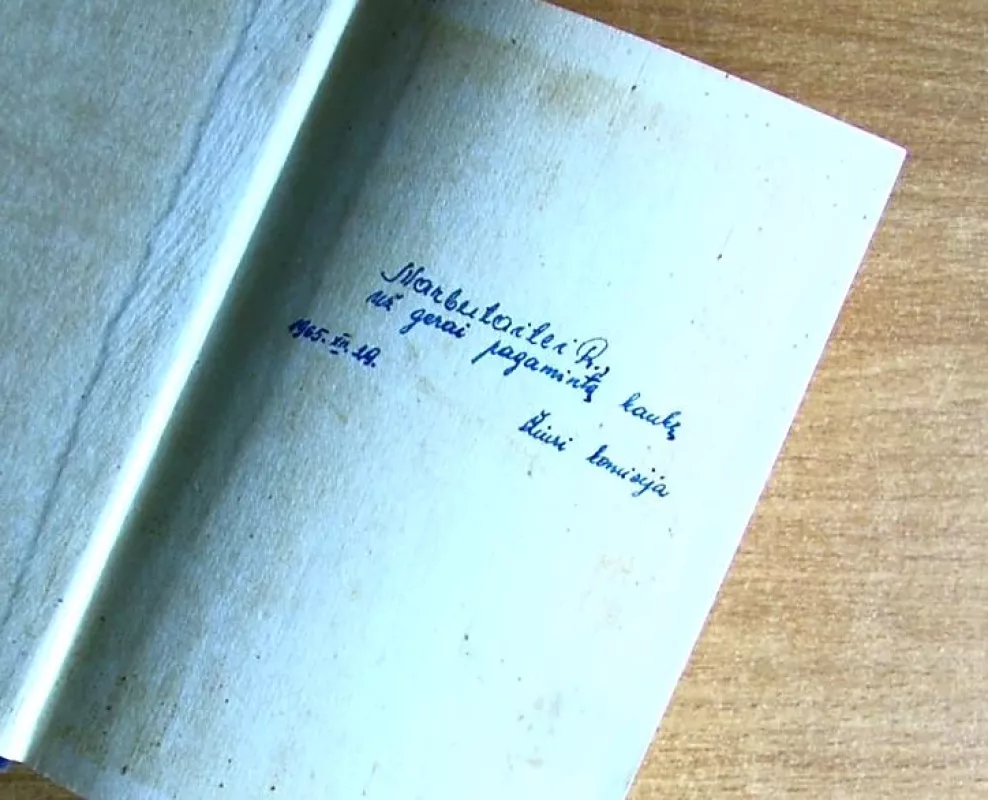 Narbutaitei R.,
už gerai pagamintą kaukę
1965.XII.29.
Žiuri komisija